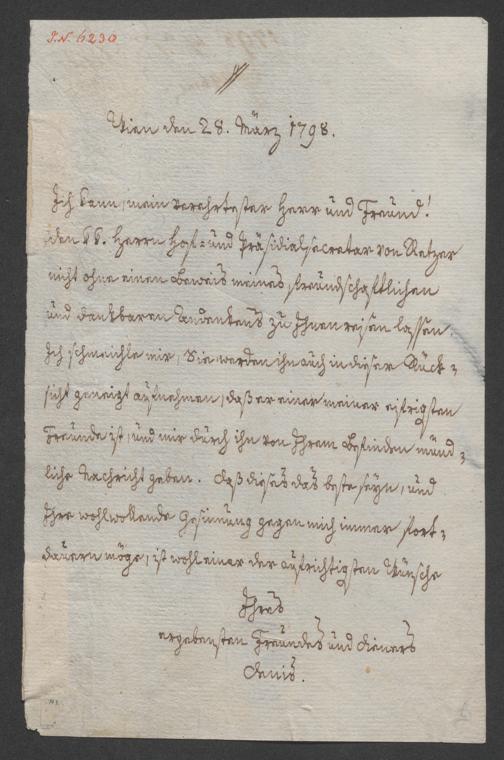 I.N. 6230
Wien den 28. März 1798.
Ich kann, mein verehrtester Herr und Freund!
den Herrn Hof= und Präsidialsecretär von Retzer
nicht ohne einen Beweis meines freundschaftlichen
und dankbaren Andenkens zu Ihnen reisen lassen.
Ich schmeichle mir, Sie werden ihn auch in dieser Rück=
sicht geneigt aufnehmen, daß er einer meiner eifrigsten
Freunde ist, und mir durch ihn von Ihrem Befinden münd=
liche Nachricht geben. Daß dieses das beste seyn, und
Ihre wohlwollende Gesinnung gegen mich immer fort=
dauern möge, ist wohl einer der aufrichtigsten Wünsche
Ihres
ergebensten Freundes und Dieners
Denis.